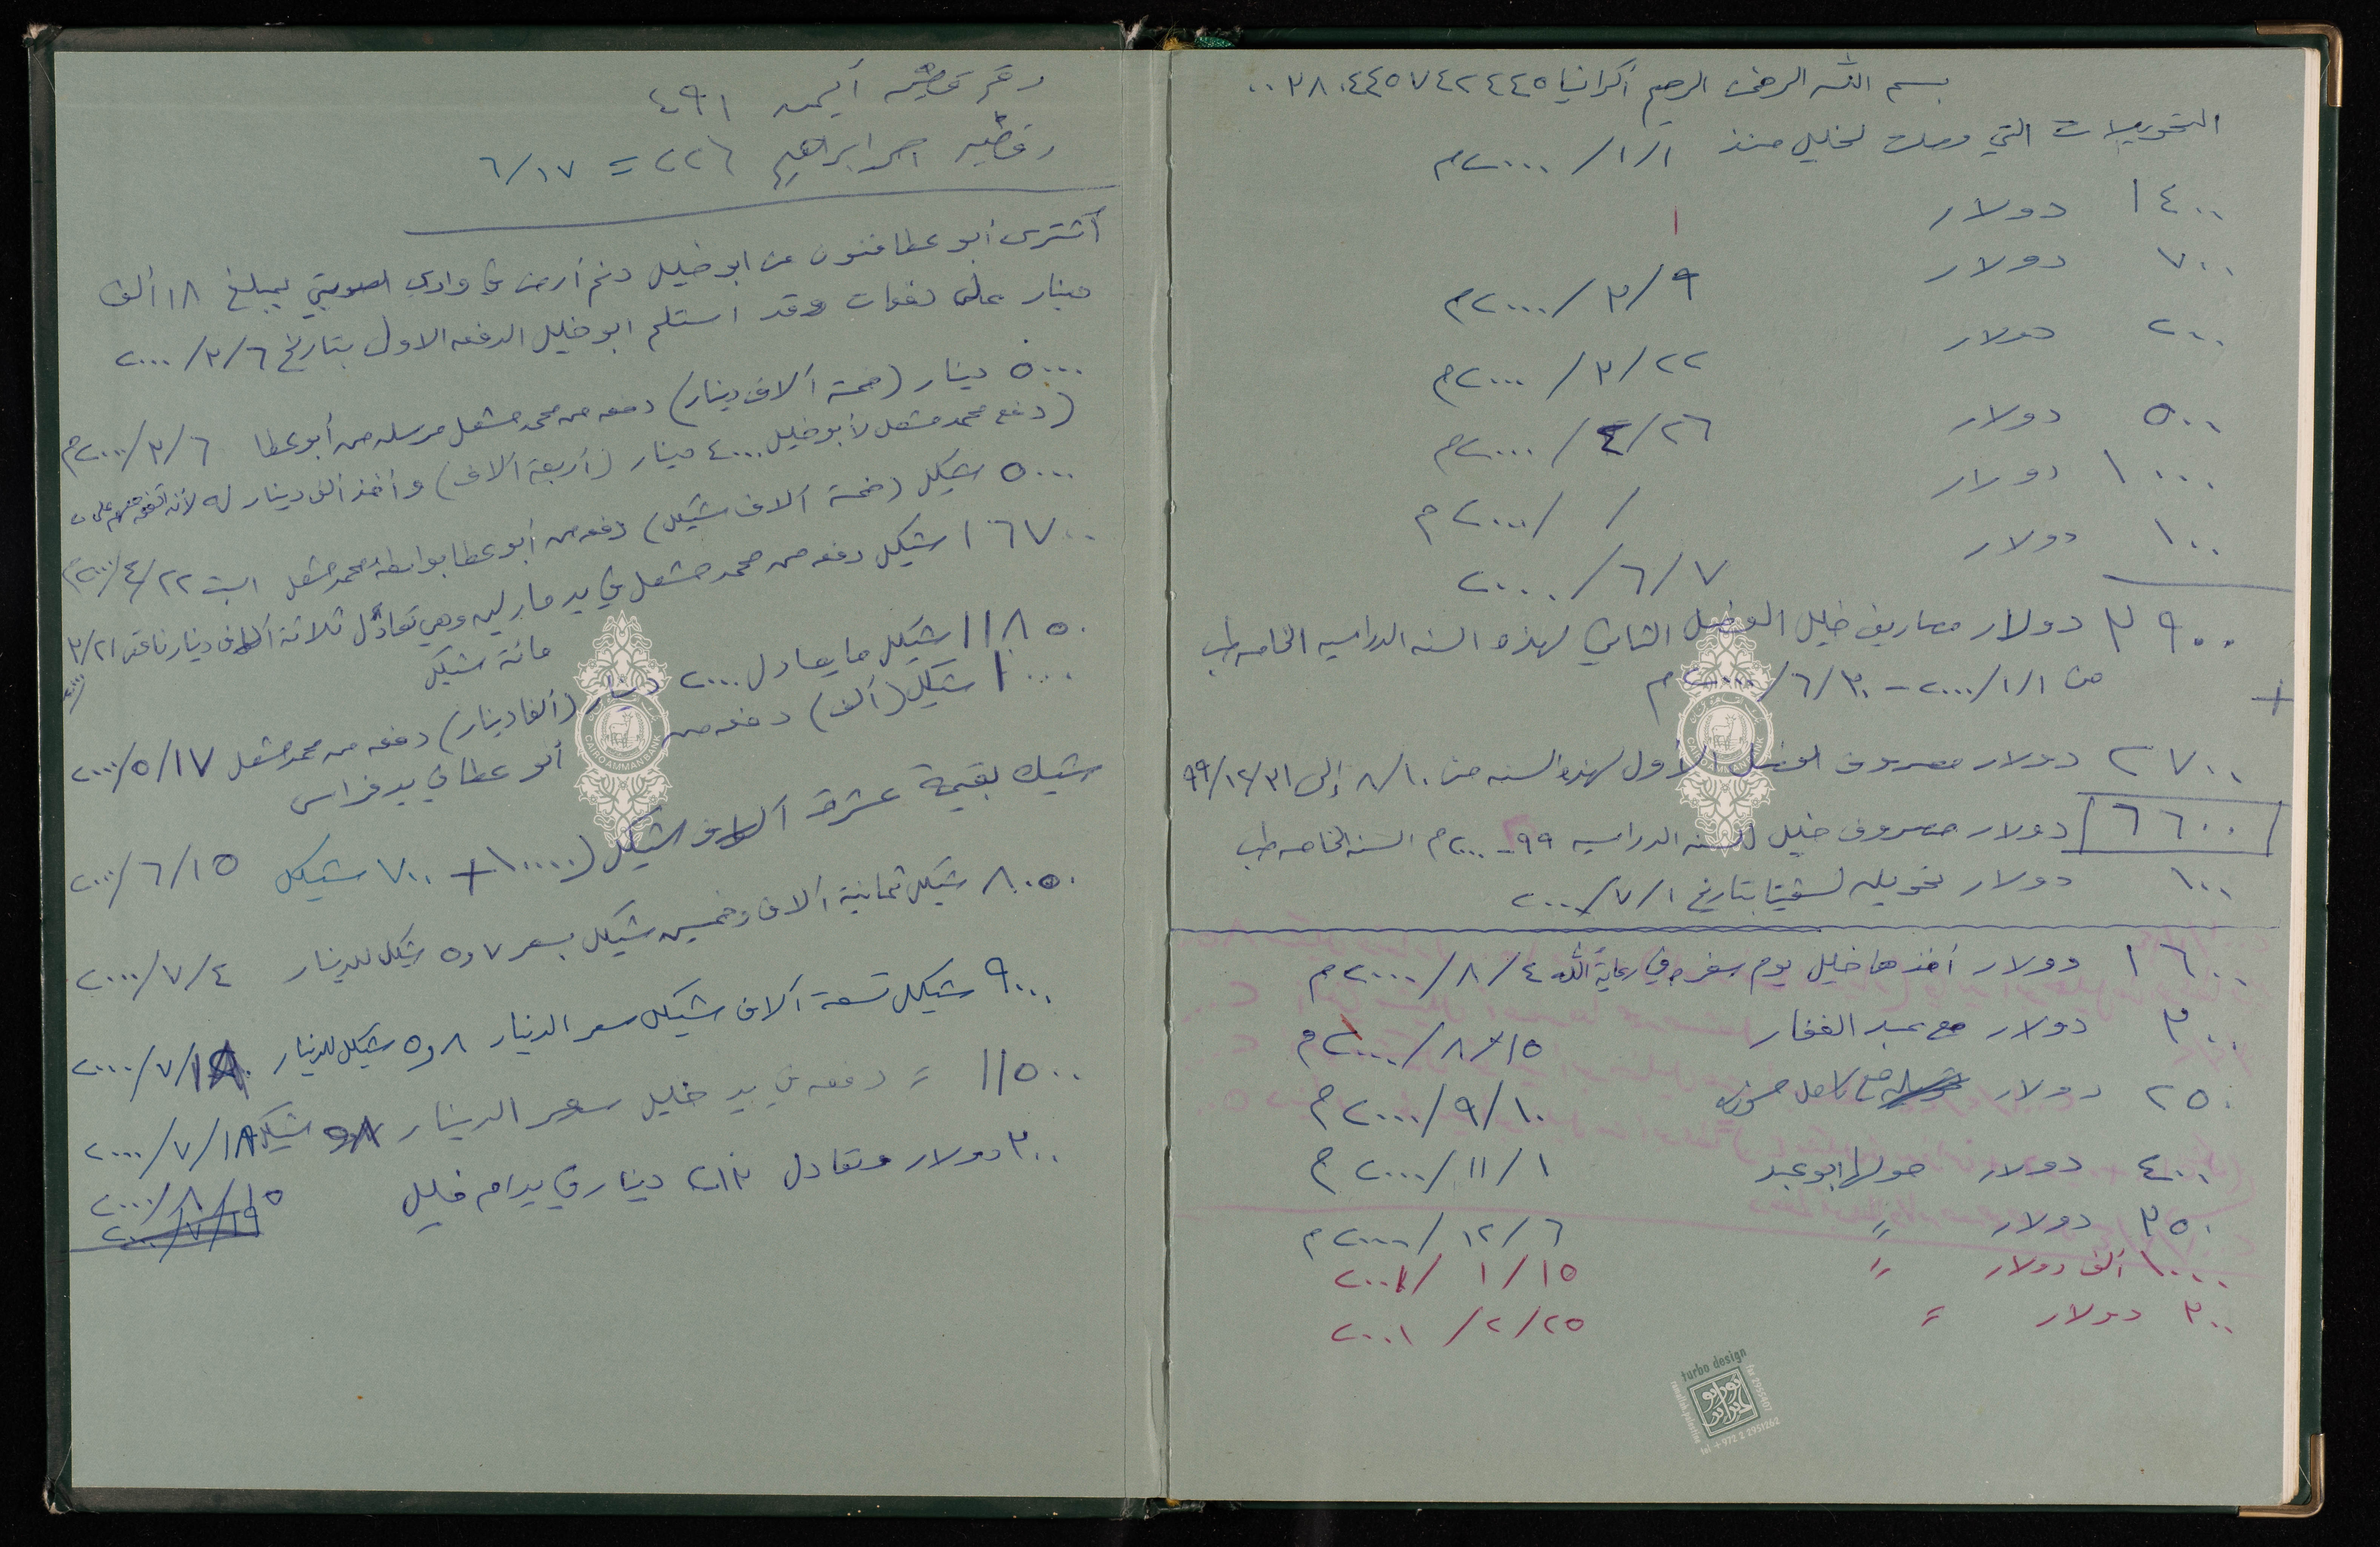 بسم الله الرحمن الرحيم أكرانيا ٠٠٣٨٠٤٤٥٧٤٢٤٤٥
التحويلات التي وصلت لخليل منذ ١/١/٢٠٠٠م
١٤٠٠ دولار
٧٠٠ دولار ٩/٣/٢٠٠٠م
٢٠٠ دولار ٢٢/٣/٢٠٠٠م
٥٠٠ دولار ٢٦/٤/٢٠٠٠م
١٠٠٠ دولار / /٢٠٠٠م
١٠٠ دولار ٧/٦/٢٠٠٠
٣٩٠٠ دولار مصاريف خليل الفصل الثاني لهذه السنه الدراسيه الخامسه طب
من ١/١/٢٠٠٠ - ٣٠/٦/٢٠٠٠م
+
٢٧٠٠ دولار مصروف الفصل الأول لهذه السنه من ١٠/٨ إلى ٣١/١٢/٩٩
٦٦٠٠ دولار مصروف خليل للسنه الدراسيه ٩٩-٢٠٠٠م السنه الخامسه طب
١٠٠ دولار تحويله لسفيتا بتاريخ ١/٧/٢٠٠٠
١٦٠٠ دولار أخذها خليل يوم سفره في رعاية الله ٤/٨/٢٠٠٠م
٣٠٠ دولار مع عبد الغفار ١٥/٨/٢٠٠٠م
٢٥٠ دولار مع كامل ١٠/٩/٢٠٠٠م
٤٠٠ دولار حولها ابو عبد ١/١١/٢٠٠٠م
٣٥٠ دولار = ٦/١٢/٢٠٠٠م
١٠٠٠ ألف دولار = ١٥/١/٢٠٠١
٣٠٠ دولار = ٢٥/٢/٢٠٠١
turbo design
ramallah.palestine
tel +972 2 2951262
fx 2955407
رقم أيمن ٤٩١
احمد ابراهيم ٢٢٦ = ١٧/٦
أشترى أبو عطا فنون من ابو خليل دنم أرض في وادي بمبلغ ١٨ ألف
دينار على دفعات وقد استلم ابو خليل الدفعه الاولى بتاريخ ٦/٣/٢٠٠٠
٥٠٠٠ دينار (خمسة آلاف دينار) دفعه من محمد مشعل مرسله من أبو عطا ٦/٣/٢٠٠٠م
(دفع محمد مشعل لأبو خليل ٤٠٠٠ دينار (أربعة آلاف) وأخذ ألف دينار له لأنه
٥٠٠٠ شيكل (خمسة آلاف شيكل) دفعه من أبو عطا بواسطة محمد مشعل السبت ٢٢/٤/٢٠٠٠)
١٦٧٠٠ شيكل دفعه من محمد مشعل في يد مارلين وهي تعادل ثلاثة آلاف دينار ناقص ٢١/٣
مائة شيكل
١١٨٥٠ شيكل ما يعادل ٢٠٠٠ دينار (ألفا دينار) دفعه من محمد مشعل ١٧/٥/٢٠٠٠
١٠٠٠ شيكل (ألف) دفعه من أبو عطا في يد فراس
شيك بقيمة عشرة آلاف شيكل (١٠٠٠٠ + ٧٠٠ شيكل ١٥/٦/٢٠٠٠
٨٠٥٠ شيكل ثمانية آلاف وخمسين شيكل بسعر ٥,٧ شيكل للدينار ٤/٧/٢٠٠٠
٩٠٠٠ شيكل تسعة آلاف شيكل سعر الدينار ٥,٨ شيكل للدينار /٧/٢٠٠٠
١١٥٠٠ = دفعه في يد خليل سعر الدينار شيكل ١٨/٧/٢٠٠٠
٣٠٠ دولار وتعادل دينار في يد ام خليل ١٥/٨/٢٠٠٠
CAIRO AMMAN BANK
CAIRO AMMAN BANK